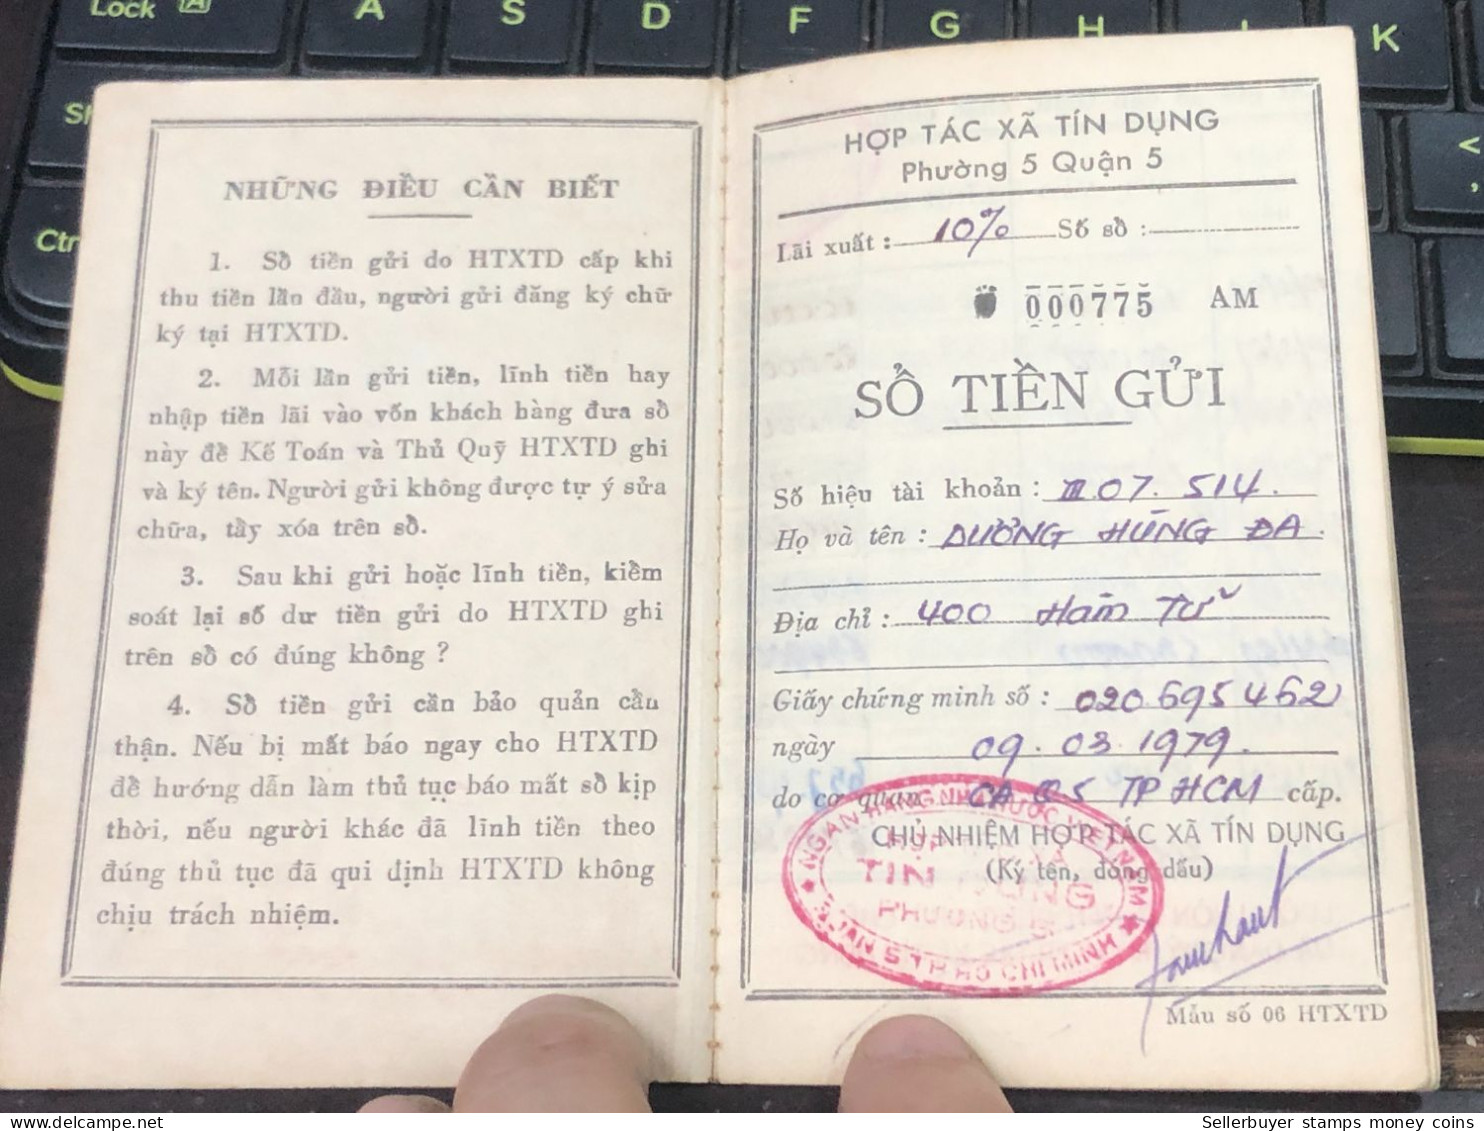 Lock A S D F G H J K
NHỮNG ĐIỀU CẦN BIẾT
1. Sổ tiền gửi do HTXTD cấp khi
thu tiền lần đầu, người gửi đăng ký chữ
ký tại HTXTD.
2. Mỗi lần gửi tiền, lĩnh tiền hay
nhập tiền lãi vào vốn khách hàng đưa sổ
này để Kế Toán và Thủ Quỹ HTXTD ghi
và ký tên. Người gửi không được tự ý sửa
chữa, tẩy xóa trên sổ.
3. Sau khi gửi hoặc lĩnh tiền, kiểm
soát lại số dư tiền gửi do HTXTD ghi
trên sổ có đúng không ?
4. Sổ tiền gửi cần bảo quản cẩn
thận. Nếu bị mất báo ngay cho HTXTD
để hướng dẫn làm thủ tục báo mất sổ kịp
thời, nếu người khác đã lĩnh tiền theo
đúng thủ tục đã qui định HTXTD không
chịu trách nhiệm.
HỢP TÁC XÃ TÍN DỤNG
Phường 5 Quận 5
Lãi xuất : 10% Số sổ :
000775 AM
SỔ TIỀN GỬI
Số hiệu tài khoản : III 07. 514.
Họ và tên : DƯƠNG HÙNG ĐA.
Địa chỉ : 400 Hàm Tử
Giấy chứng minh số : 020.695462
ngày 09. 03. 1979.
do cơ quan CA Q5 TP HCM cấp.
CHỦ NHIỆM HỢP TÁC XÃ TÍN DỤNG
(Ký tên, đóng dấu)
NGÂN HÀNG NHÀ NƯỚC VIỆT NAM
HỢP TÁC XÃ
TÍN DỤNG
PHƯỜNG 5
QUẬN 5 TP HỒ CHÍ MINH
Mẫu số 06 HTXTD
Sellerbuyer stamps money coins